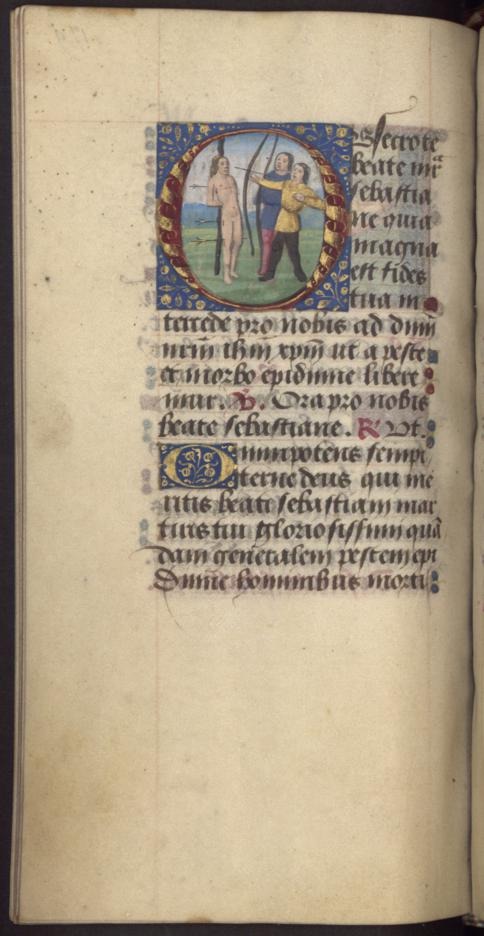 O Secro te
beate mr̄
sebastia
ne quia
magna
est fides
tua in
tercede pro nobis ad dnm̄
nrm̄ ihm̄ xpm̄ ut a peste
et morbo epidimie libere
mur. V. Ora pro nobis
beate sebastiane. R Ut.
Omnipotens sempi
terne deus qui me
ritis beati sebastiani mar
tiris tui gloriosissimi quā
dam generalem pestem epi
dimie hominibus morti